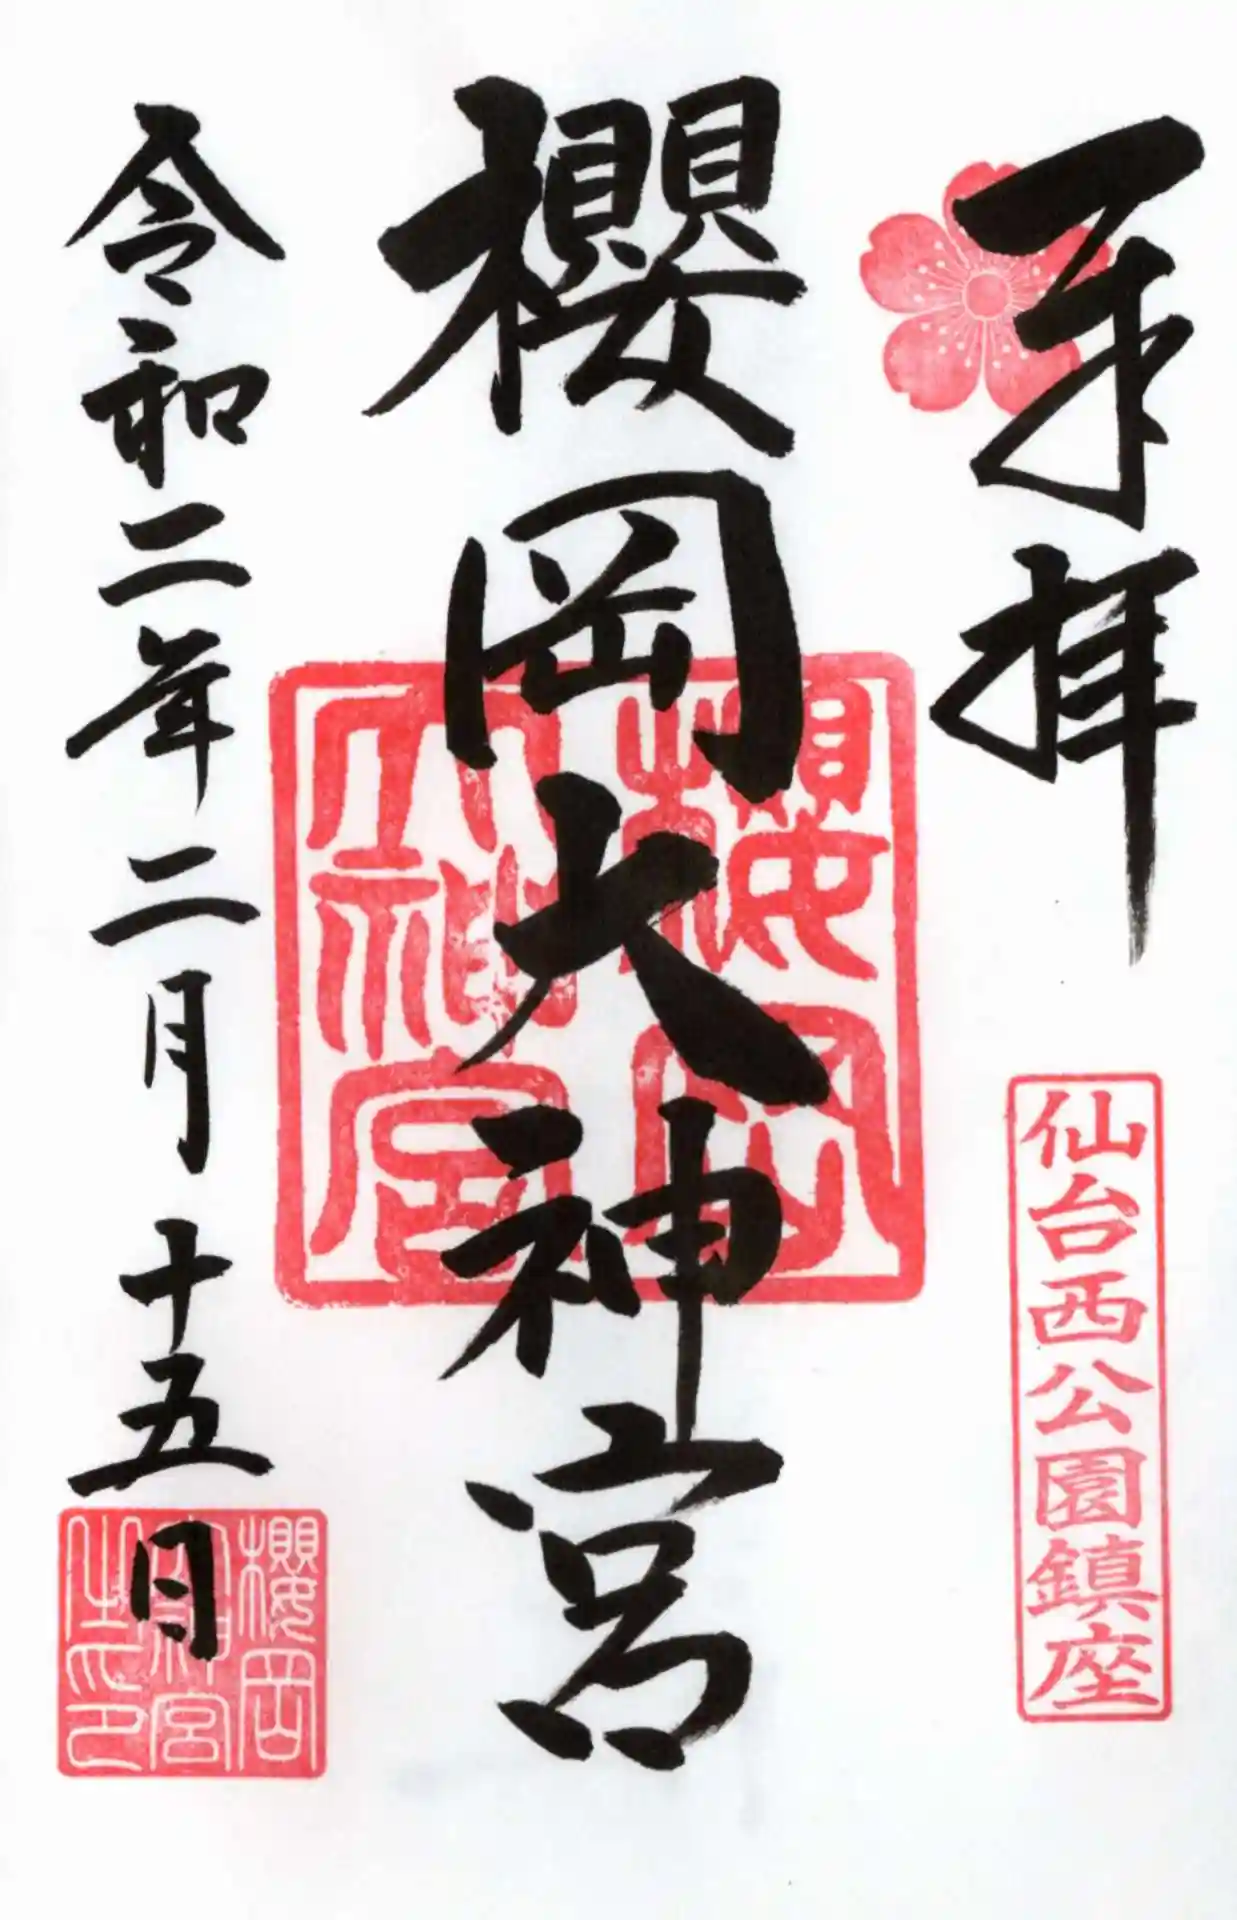 奉拝
仙台西公園鎮座
櫻岡大神宮
櫻岡
大神宮
令和二年二月十五日
櫻岡
神宮
之印